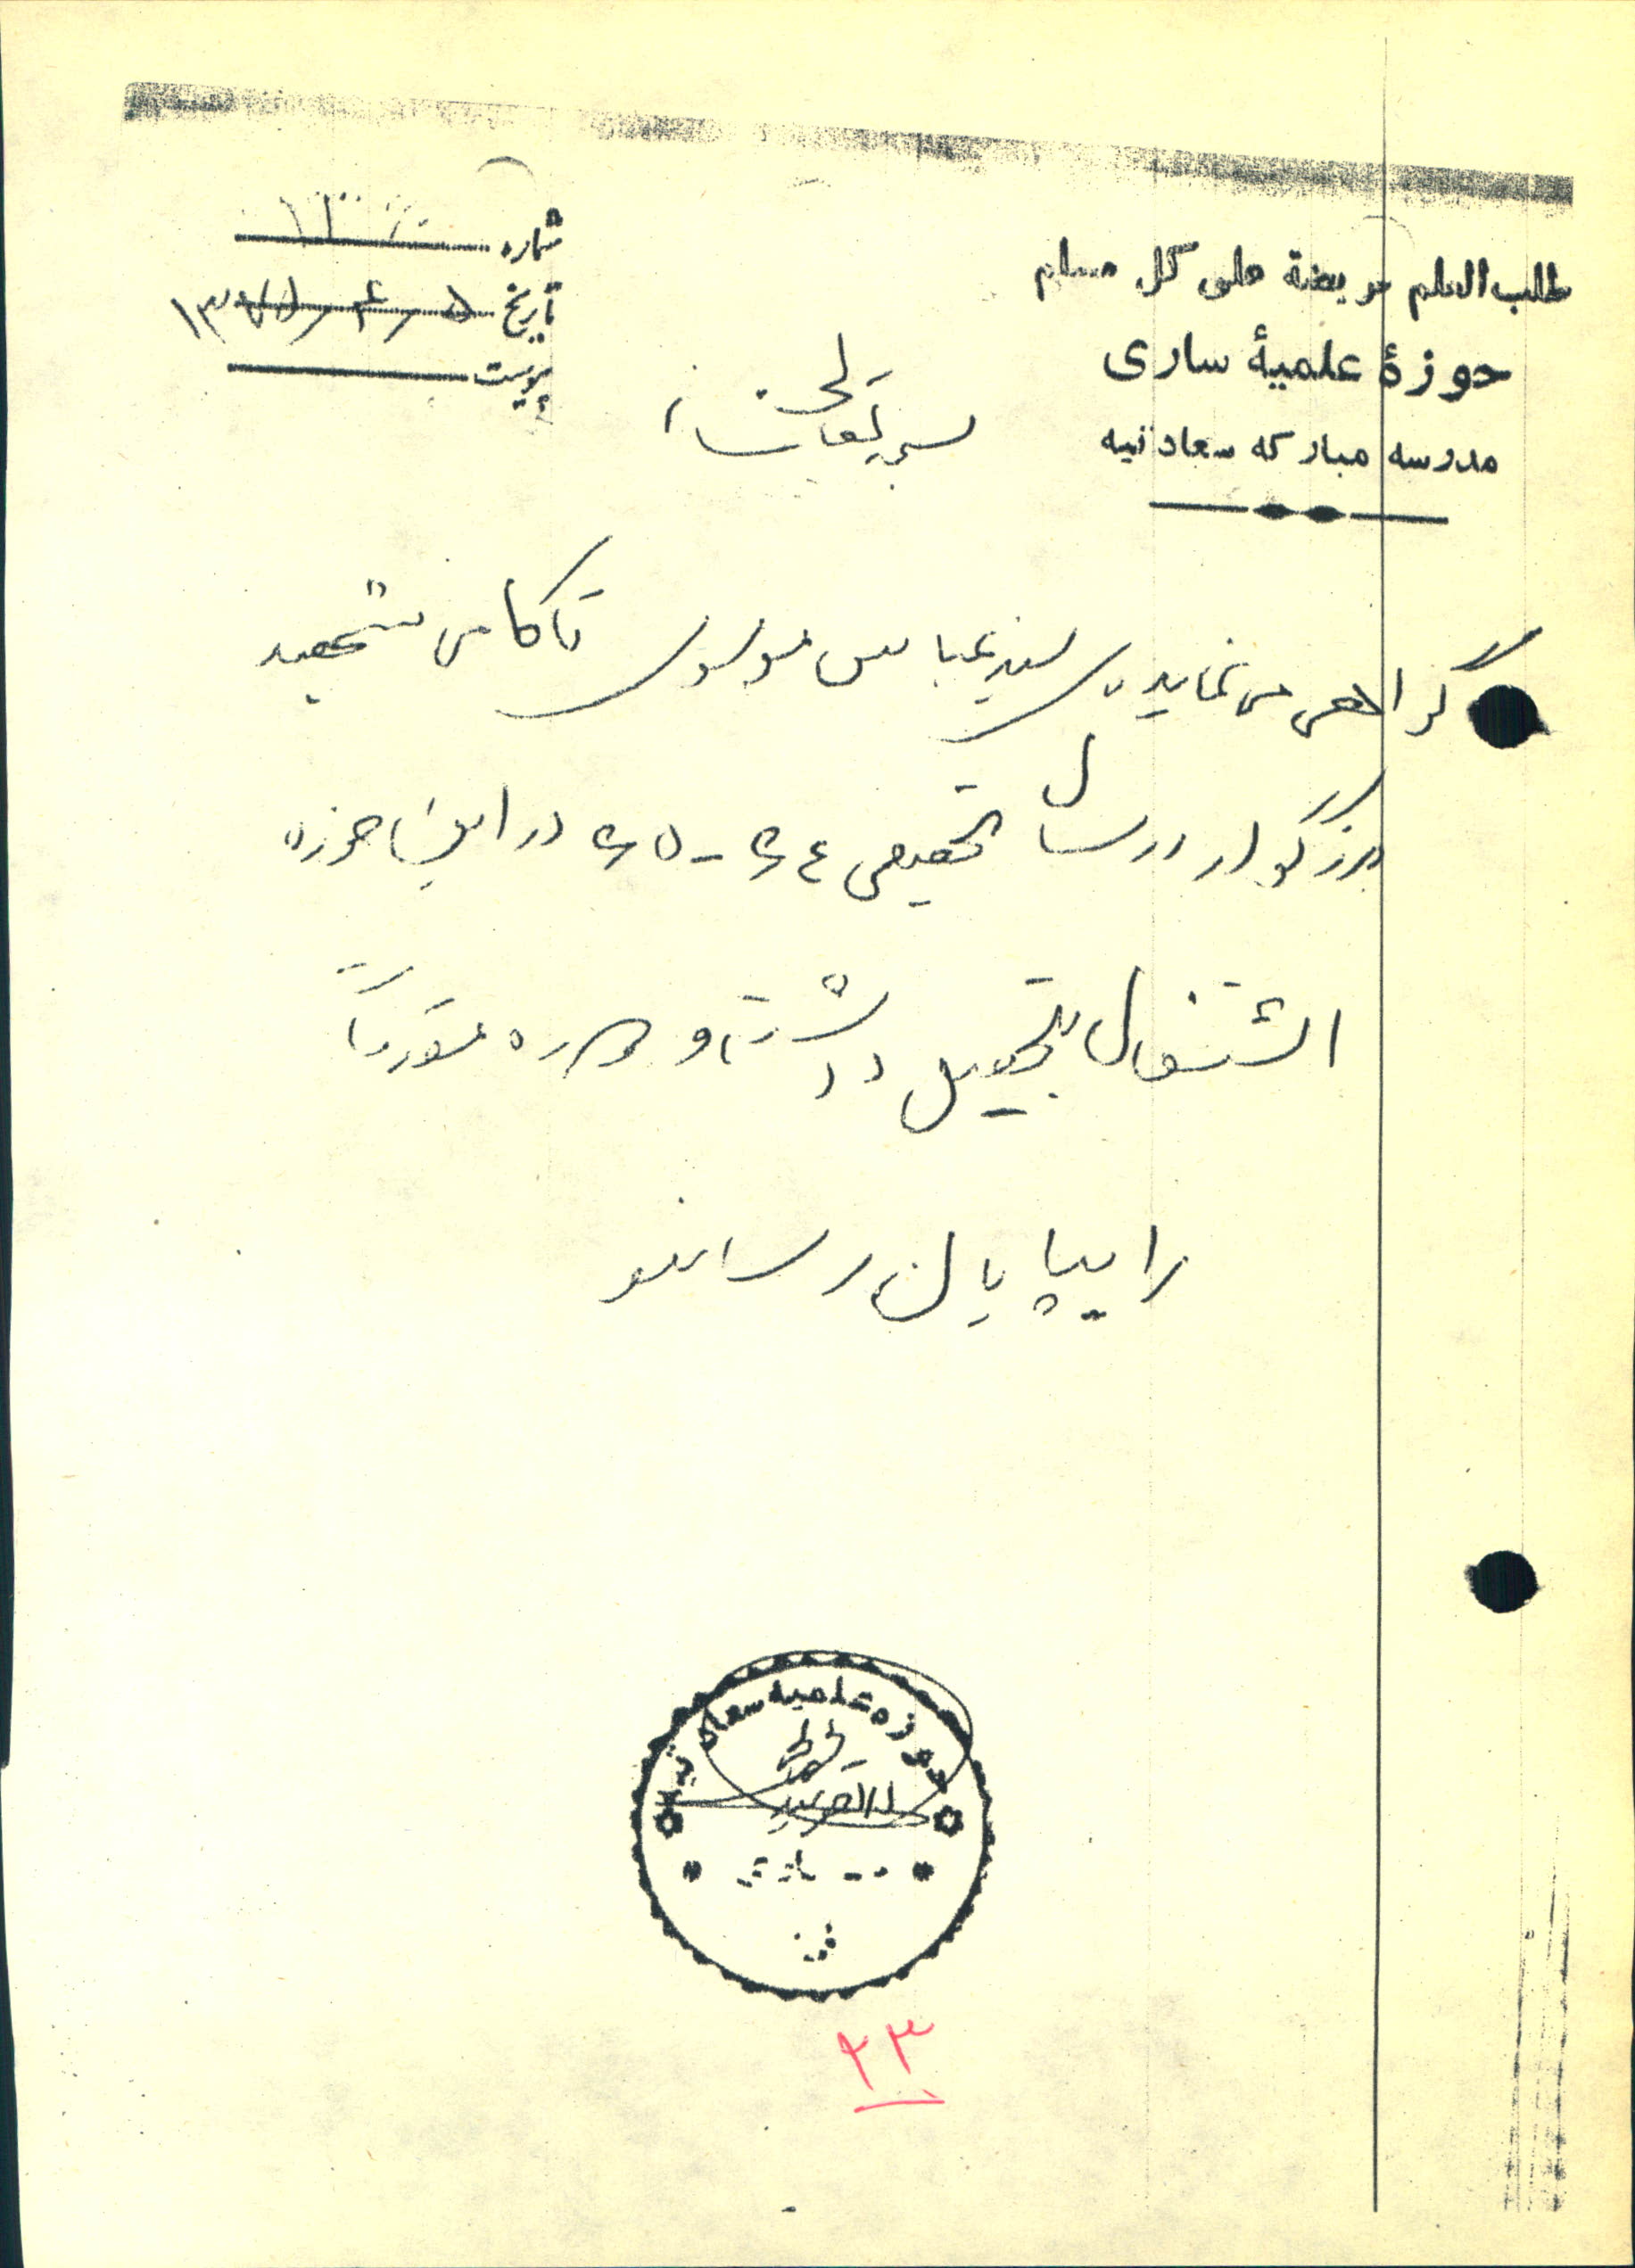 طلب العلم فریضة علی کل مسلم
حوزهٔ علمیهٔ ساری
مدرسه مبارکه سعادتیه
شماره
تاریخ ۱۳۷۵/۴/۵
پیوست
بسمه تعالی
گواهی می نماید سید عباس موسوی تاکامی شهید
بزرگوار در سال تحصیلی ۶۴-۶۵ در این حوزه
اشتغال بتحصیل داشته و دوره مقدمات
را بپایان رساند
حوزه علمیه سعادتیه
۲۳